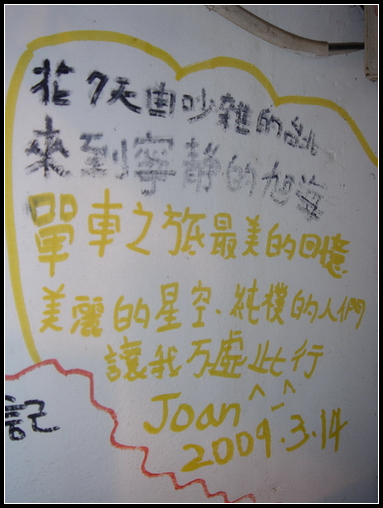 花7天由吵雜的台北
來到寧静的旭海
單車之旅最美的回憶
美麗的星空、純樸的人們
讓我万虛此行
Joan ^_^
2009.3.14
記